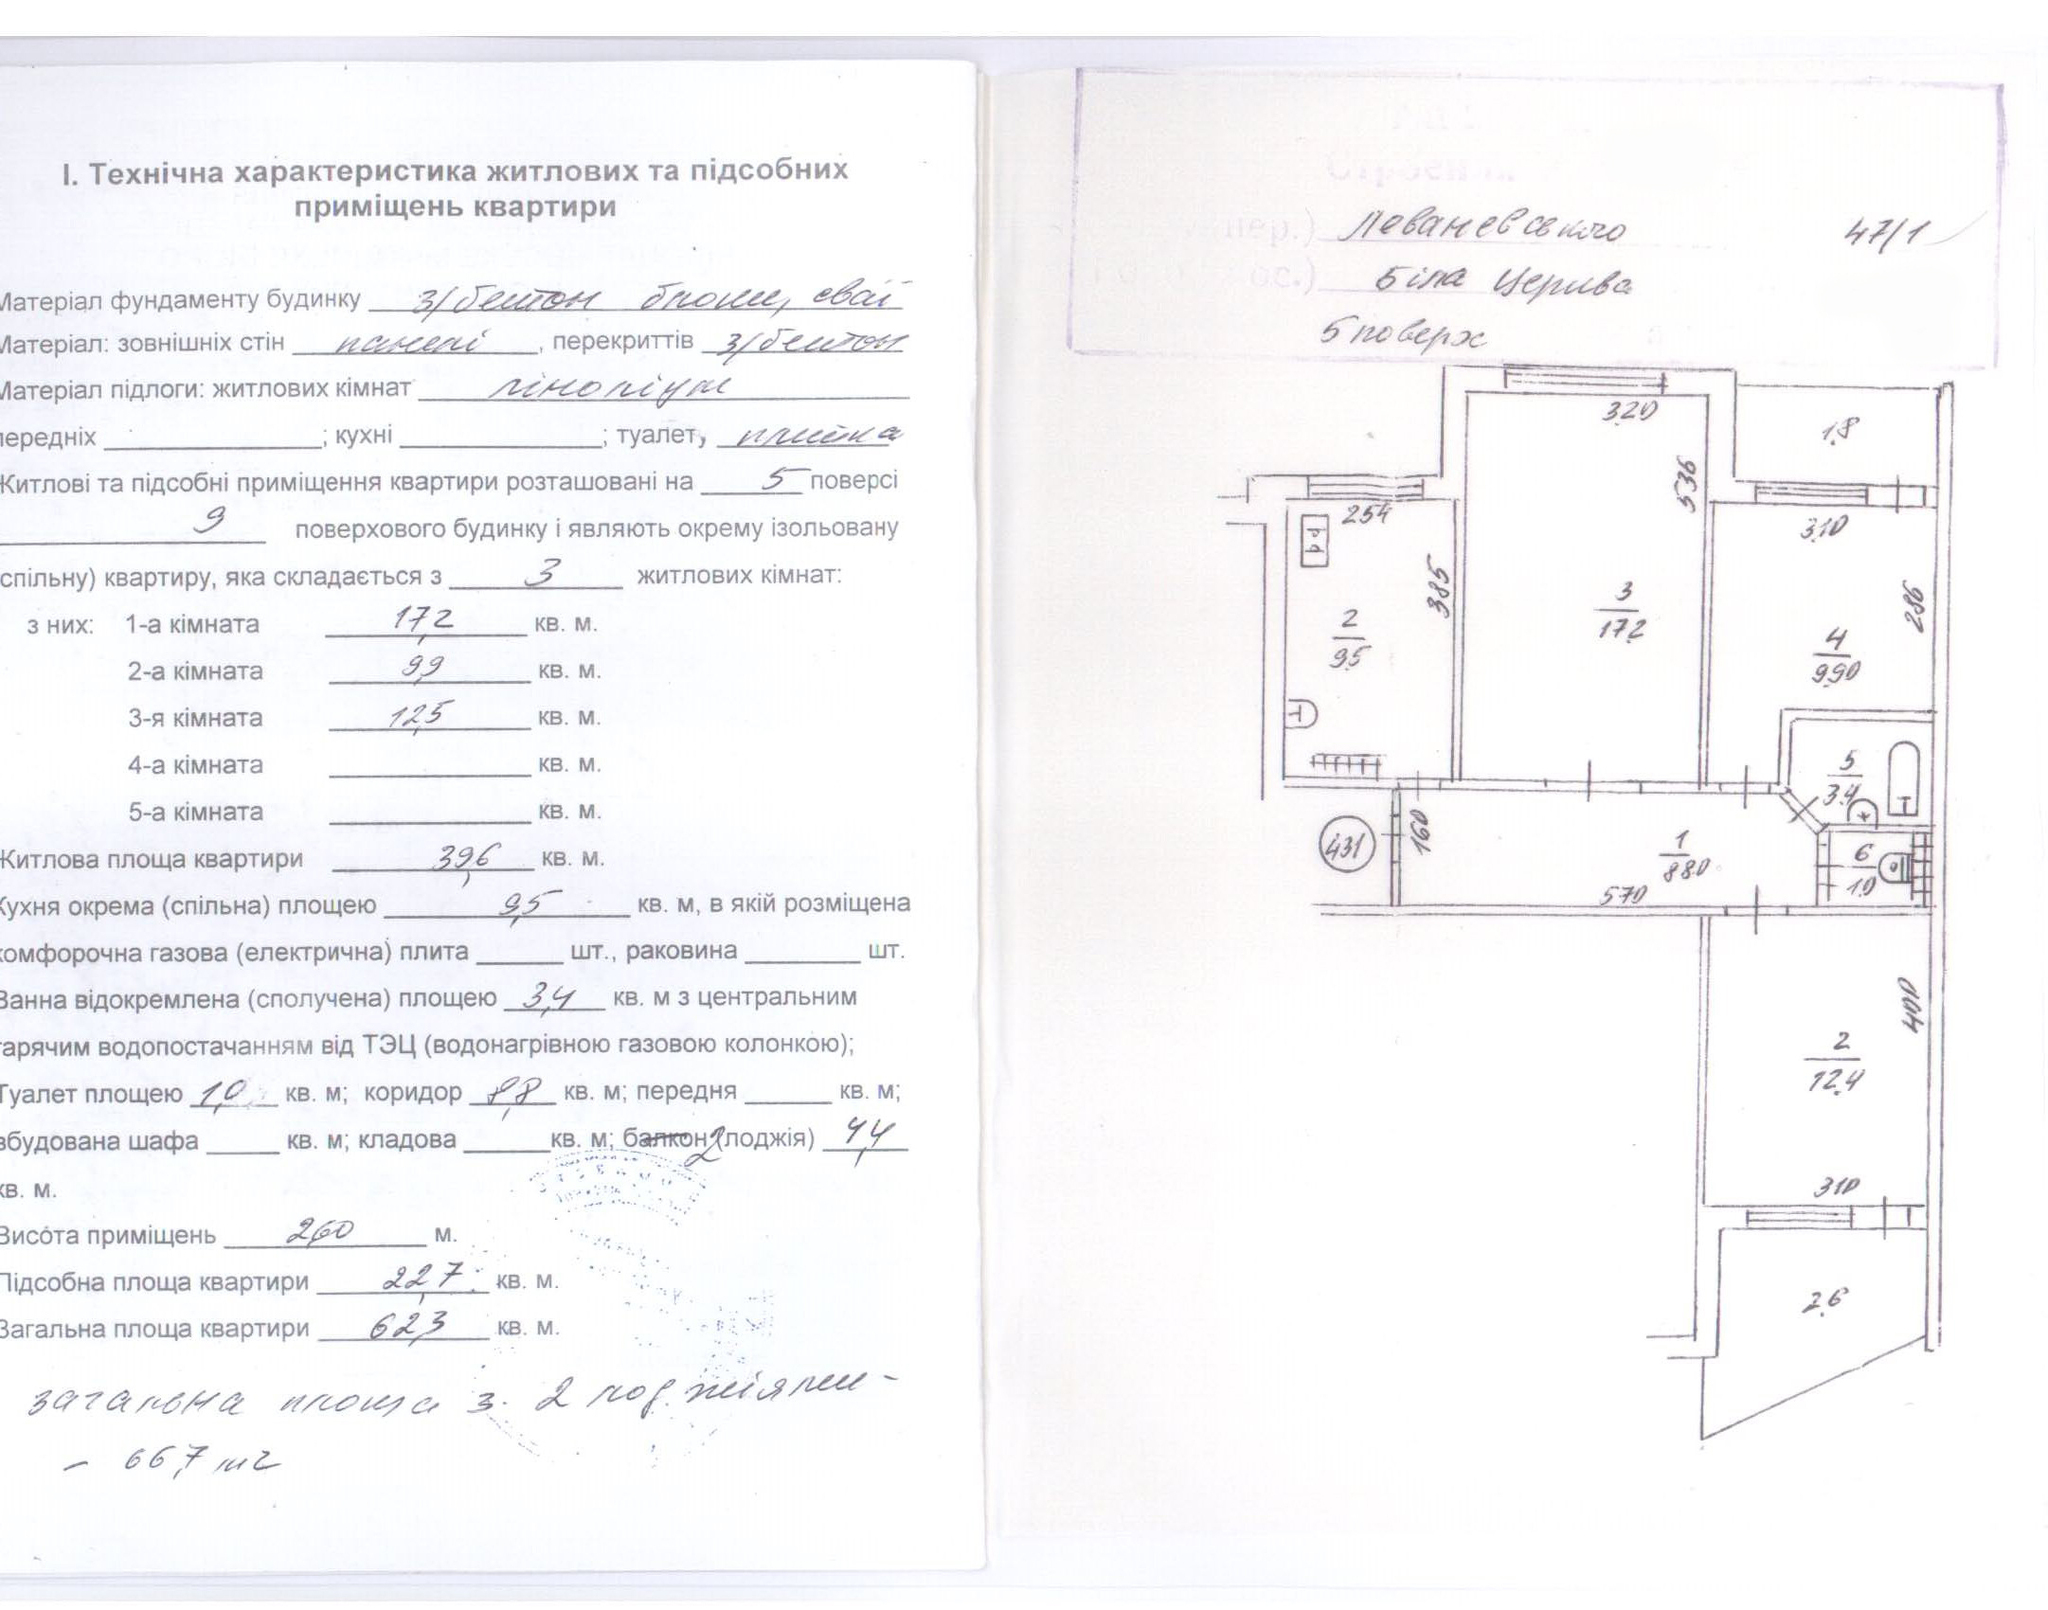 І. Технічна характеристика житлових та підсобних
приміщень квартири
Матеріал фундаменту будинку з/бетон блоки, сваї
Матеріал: зовнішніх стін панелі, перекриттів з/бетон
Матеріал підлоги: житлових кімнат ліноліум
передніх ; кухні ; туалет, плитка
Житлові та підсобні приміщення квартири розташовані на 5 поверсі
9 поверхового будинку і являють окрему ізольовану
спільну) квартиру, яка складається з 3 житлових кімнат:
з них: 1-а кімната 17,2 кв. м.
2-а кімната 9,9 кв. м.
3-я кімната 12,5 кв. м.
4-а кімната кв. м.
5-а кімната кв. м.
Житлова площа квартири 39,6 кв. м.
Кухня окрема (спільна) площею 9,5 кв. м, в якій розміщена
комфорочна газова (електрична) плита шт., раковина шт.
Ванна відокремлена (сполучена) площею 3,4 кв. м з центральним
гарячим водопостачанням від ТЭЦ (водонагрівною газовою колонкою);
Туалет площею 1,0 кв. м; коридор 8,8 кв. м; передня кв. м;
вбудована шафа кв. м; кладова кв. м; балкон 2 (лоджія) 4,4
кв. м.
Висота приміщень 2,60 м.
Підсобна площа квартири 22,7 кв. м.
Загальна площа квартири 62,3 кв. м.
загальна площа з 2 лоджіями -
- 66,7 м2
пер.) Леваневського 47/1
ос.) Біла Церква
5 поверх
320
1.8
536
254
310
385
286
3
17.2
2
9.5
4
9.90
5
3.4
431
160
1
8.80
6
1.0
570
400
2
12.4
310
2.6